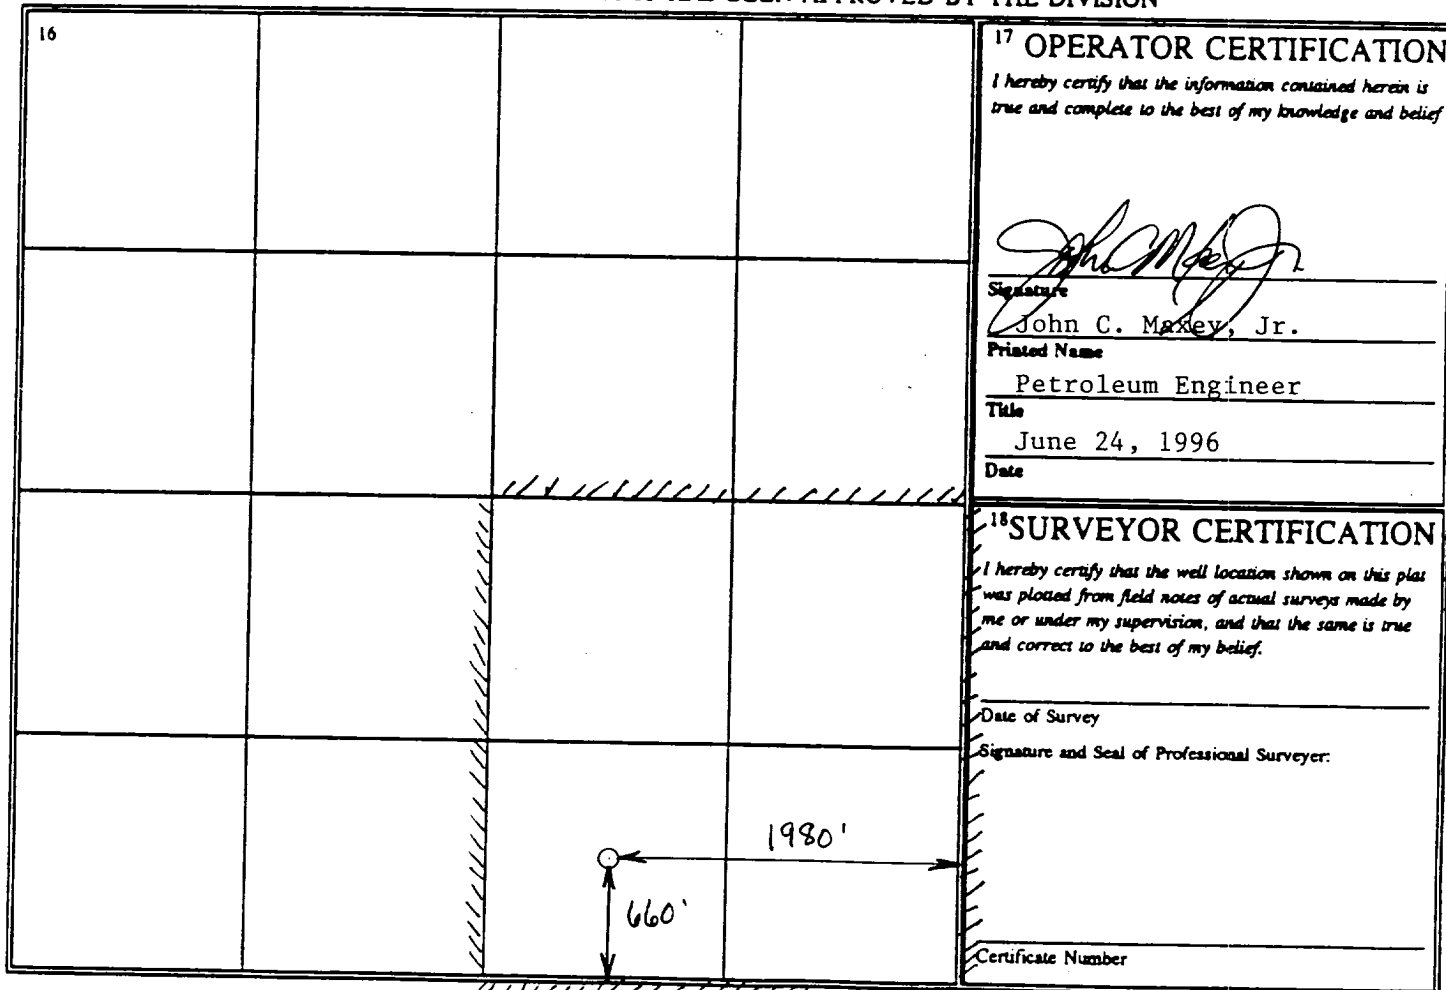 APPROVED BY THE DIVISION
16
17 OPERATOR CERTIFICATION
I hereby certify that the information contained herein is
true and complete to the best of my knowledge and belief
Signature
John C. Maxey, Jr.
Printed Name
Petroleum Engineer
Title
June 24, 1996
Date
18 SURVEYOR CERTIFICATION
I hereby certify that the well location shown on this plat
was plotted from field notes of actual surveys made by
me or under my supervision, and that the same is true
and correct to the best of my belief.
Date of Survey
Signature and Seal of Professional Surveyer:
1980'
660'
Certificate Number